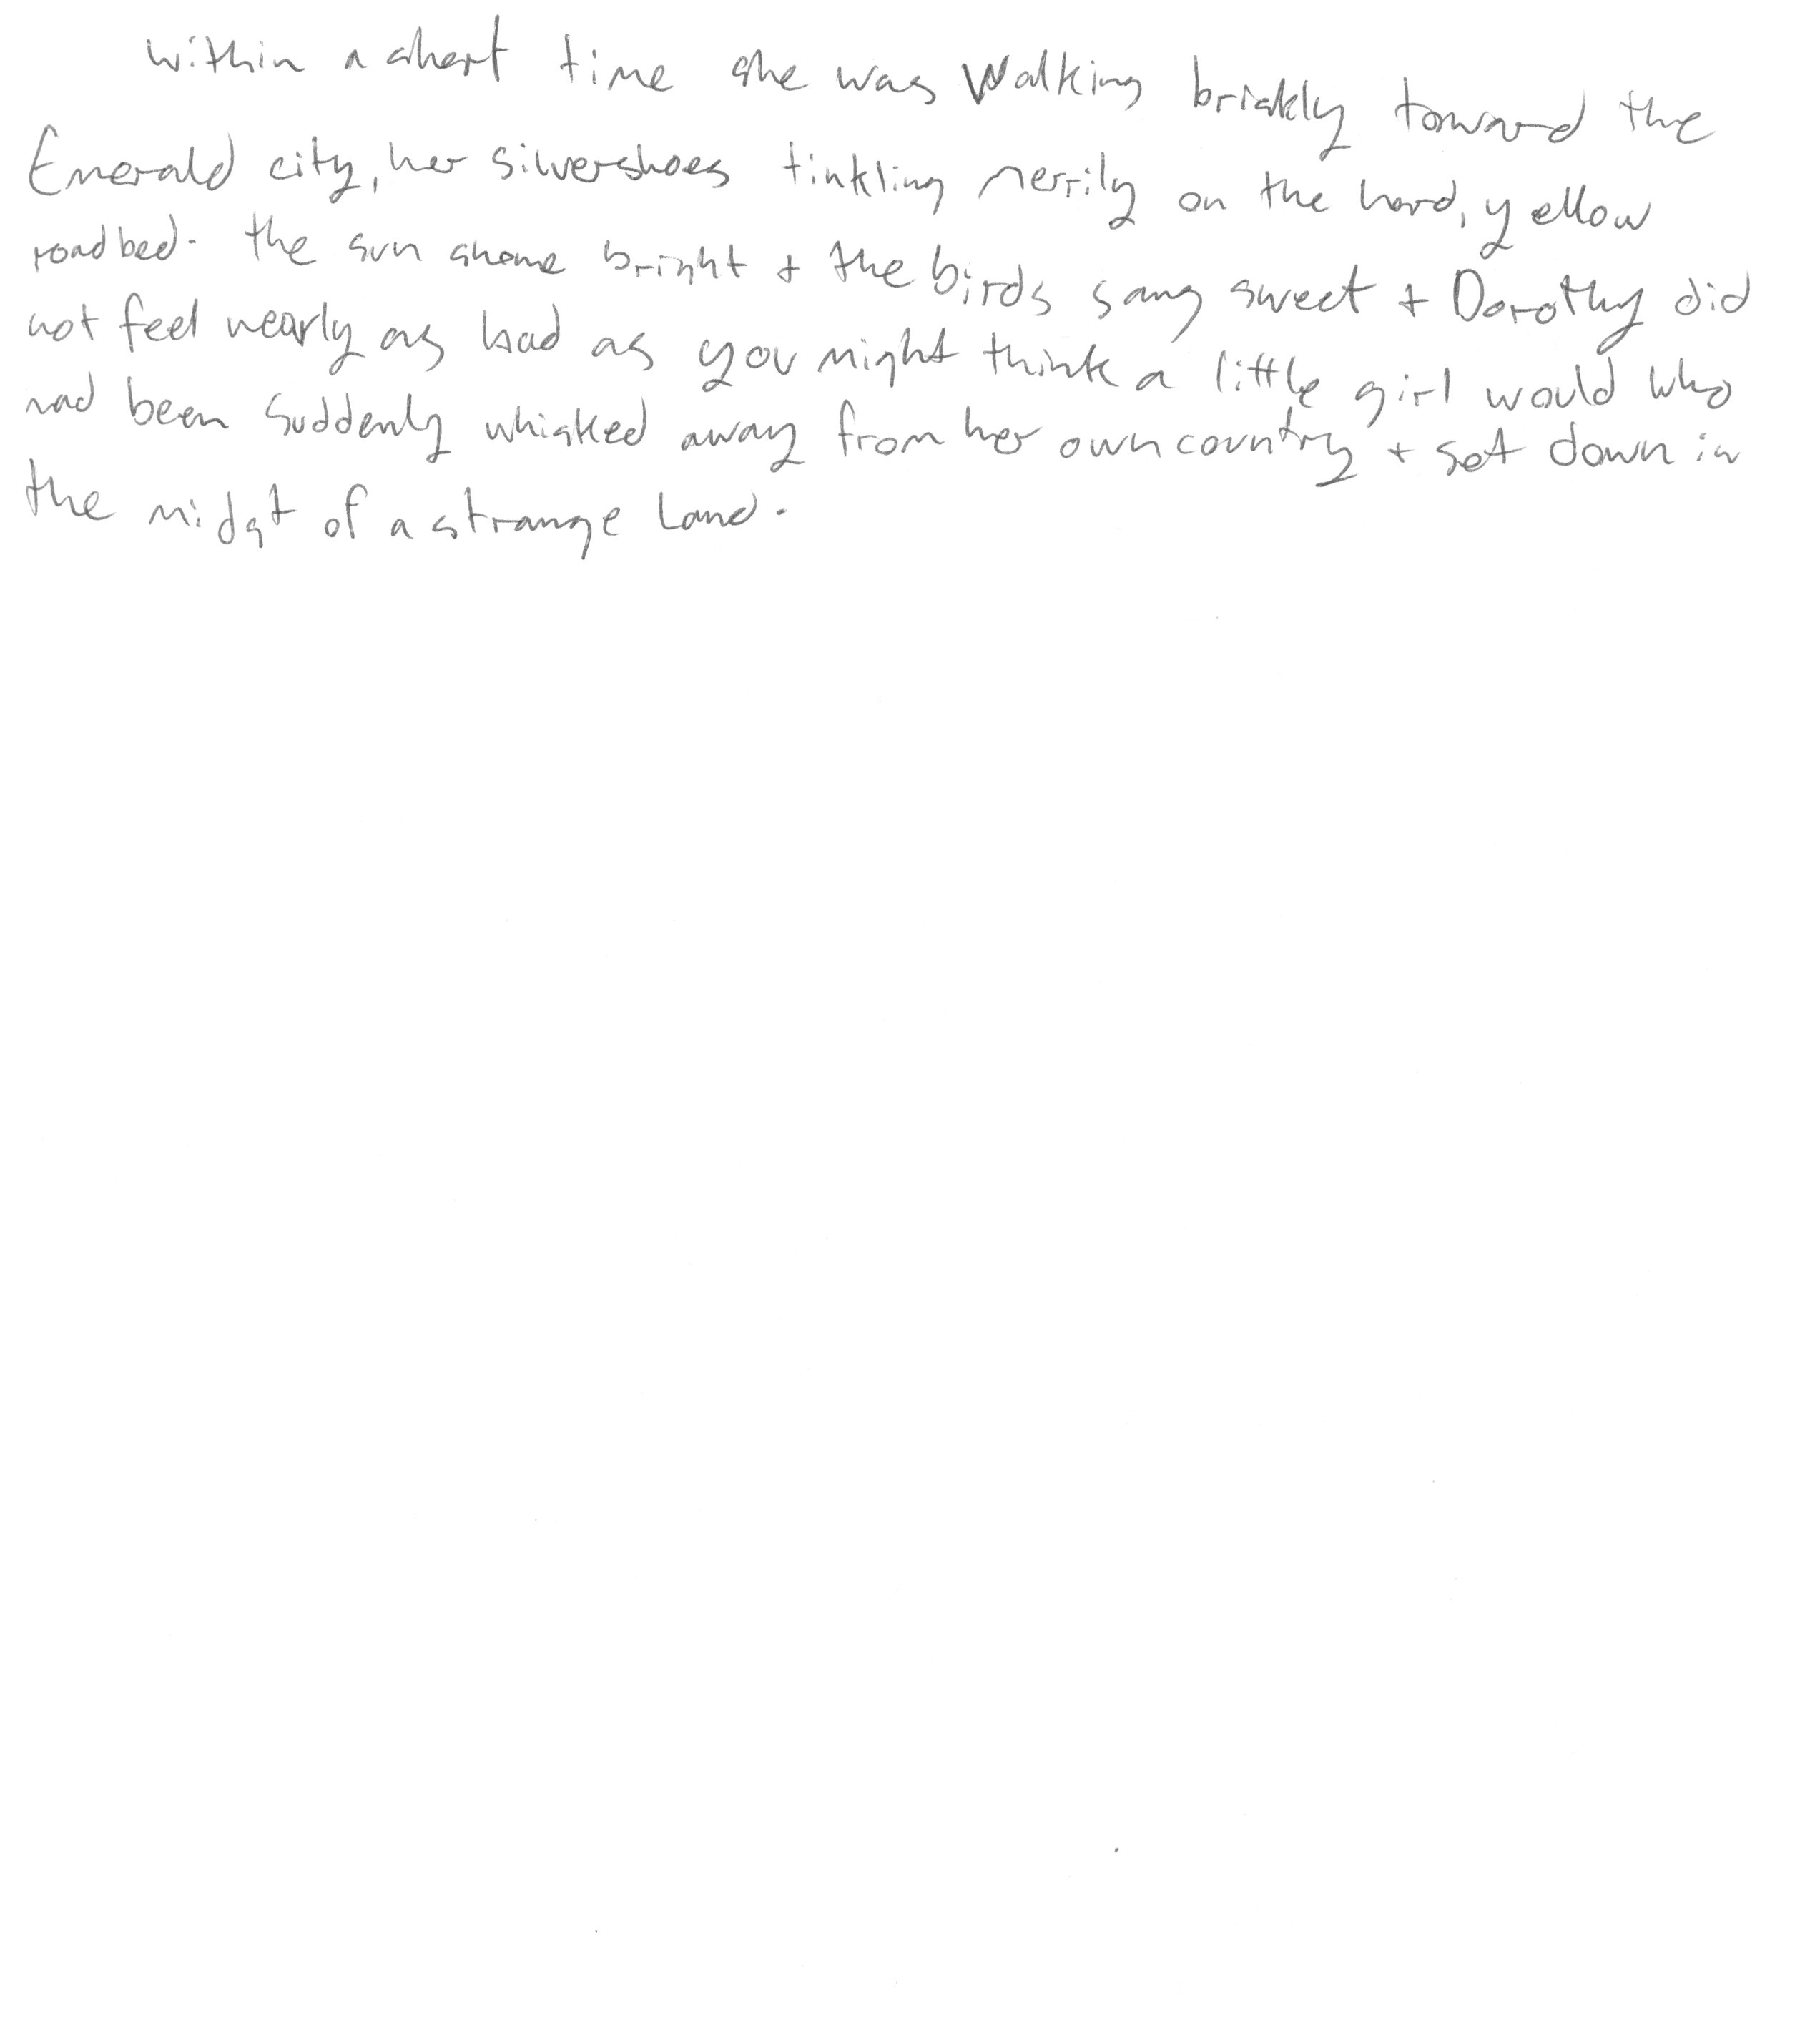 within a short time she was Walking briskly toward the
Emerald city, her silvershoes tinkling merrily on the hard, yellow
roadbed. the sun shone bright + the birds sang sweet + Dorothy did
not feel nearly as bad as you might think a little girl would who
had been suddenly whisked away from her own country + set down in
the midst of a strange land.